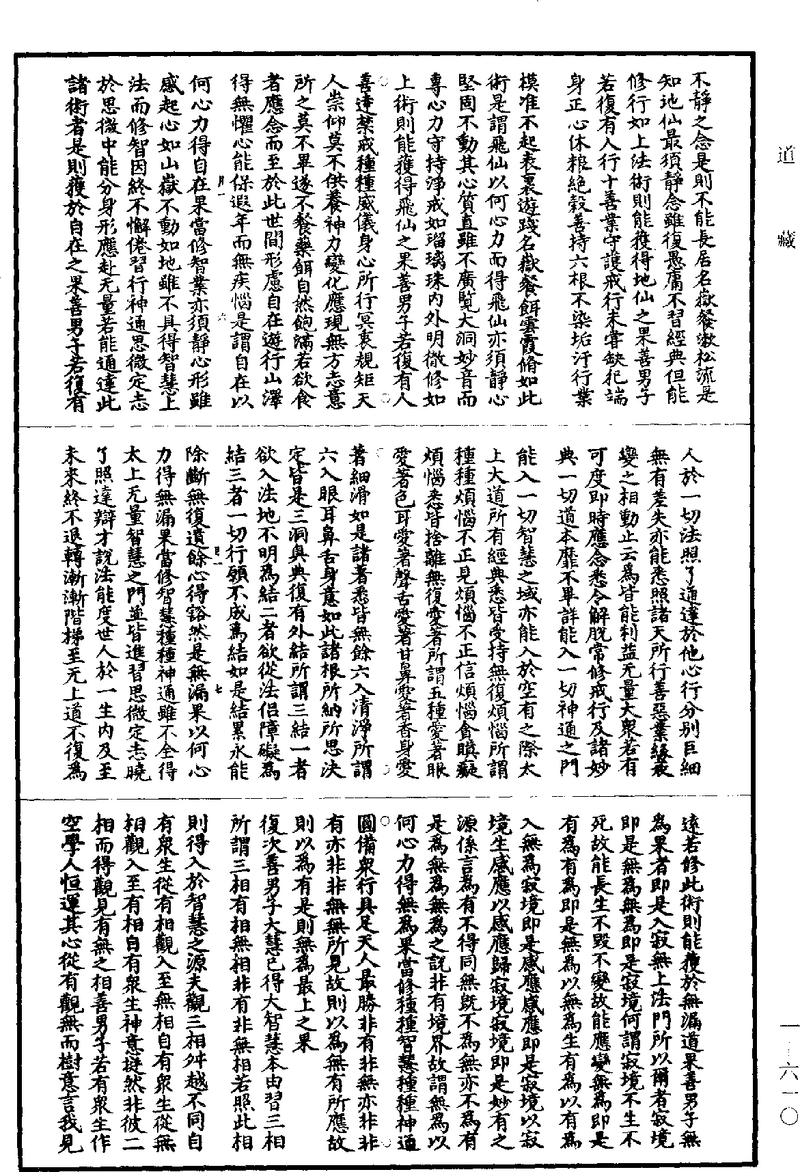 道藏
不靜之念是則不能長居名嶽餐漱松流是
知地仙最須靜念雖復愚庸不習經典但能
修行如上法術則能獲得地仙之果善男子
若復有人行十善業守護戒行未嘗缺犯端
身正心休粮絕穀善持六根不染垢汙行業
模准不起表裏遊踐名嶽餐餌雲霞脩如此
術是謂飛仙以何心力而得飛仙亦須靜心
堅固不動其心質直雖不廣覽大洞妙音而
專心力守持淨戒如瑠璃珠內外明徹修如
上術則能獲得飛仙之果善男子若復有人
善達禁戒種種威儀身心所行冥衷規矩天
人崇仰莫不供養神力變化應現無方志意
所之莫不畢遂不餐藥餌自然飽滿若欲食
者應念而至於此世間形慮自在遊行山澤
得無懼心能保遐年而無疾惱是謂自在以
何心力得自在果當修智業亦須靜心形雖
感起心如山嶽不動如地雖不具得智慧上
法而修智因終不懈倦習行神通思微定志
於思微中能分身形應赴无量若能通達此
諸術者是則獲於自在之果善男子若復有
人於一切法照了通達於他心行分別巨細
無有差失亦能悉照諸天所行善惡業緣衰
變之相動止云為皆能利益无量大衆若有
可度即時應念悉令解脫常修戒行及諸妙
典一切道本靡不畢詳能入一切神通之門
能入一切智慧之域亦能入於空有之際太
上大道所有經典悉皆受持無復煩惱所謂
種種煩惱不正見煩惱不正信煩惱貪瞋癡
煩惱悉皆捨離無復愛著所謂五種愛著眼
愛著色耳愛著聲舌愛著甘鼻愛著香身愛
著細滑如是諸著悉皆無餘六入清淨所謂
六入眼耳鼻舌身意如此諸根所納所思決
定皆是三洞與典復有外結所謂三結一者
欲入法地不明為結二者欲從法侶障礙為
結三者一切行願不成為結如是結累永能
除斷無復遺餘心得豁然是無漏果以何心
力得無漏果當修智慧種種神通雖不全得
太上无量智慧之門並皆進習思微定志曉
了照達辯才說法能度世人於一生內及至
未來終不退轉漸漸階梯至无上道不復為
遠若修此術則能獲於無漏道果善男子無
為果者即是入寂無上法門所以爾者寂境
即是無為無為即是寂境何謂寂境不生不
死故能長生不毀不變故能應變無為即是
有為有為即是無為以無為生有為以有為
入無為寂境即是感應感應即是寂境以寂
境生感應以感應歸寂境寂境即是妙有之
源係言為有不得同無既不為無亦不為有
是為無為無為之說非有境界故謂無為以
何心力得無為果當修種種智慧種種神通
圓備衆行具足天人最勝非有非無亦非非
有亦非非無無所見故則以為無有所應故
則以為有是則無為最上之果
復次善男子大慧已得大智慧本由習三相
所謂三相有相無相非有非無相若照此相
則得入於智慧之源夫觀三相舛越不同自
有衆生從有相觀入至無相自有衆生從無
相觀入至有相自有衆生神意挺然非彼二
相而得觀見有無之相善男子若有衆生作
空學人恒運其心從有觀無而樹意言我見
一六一〇